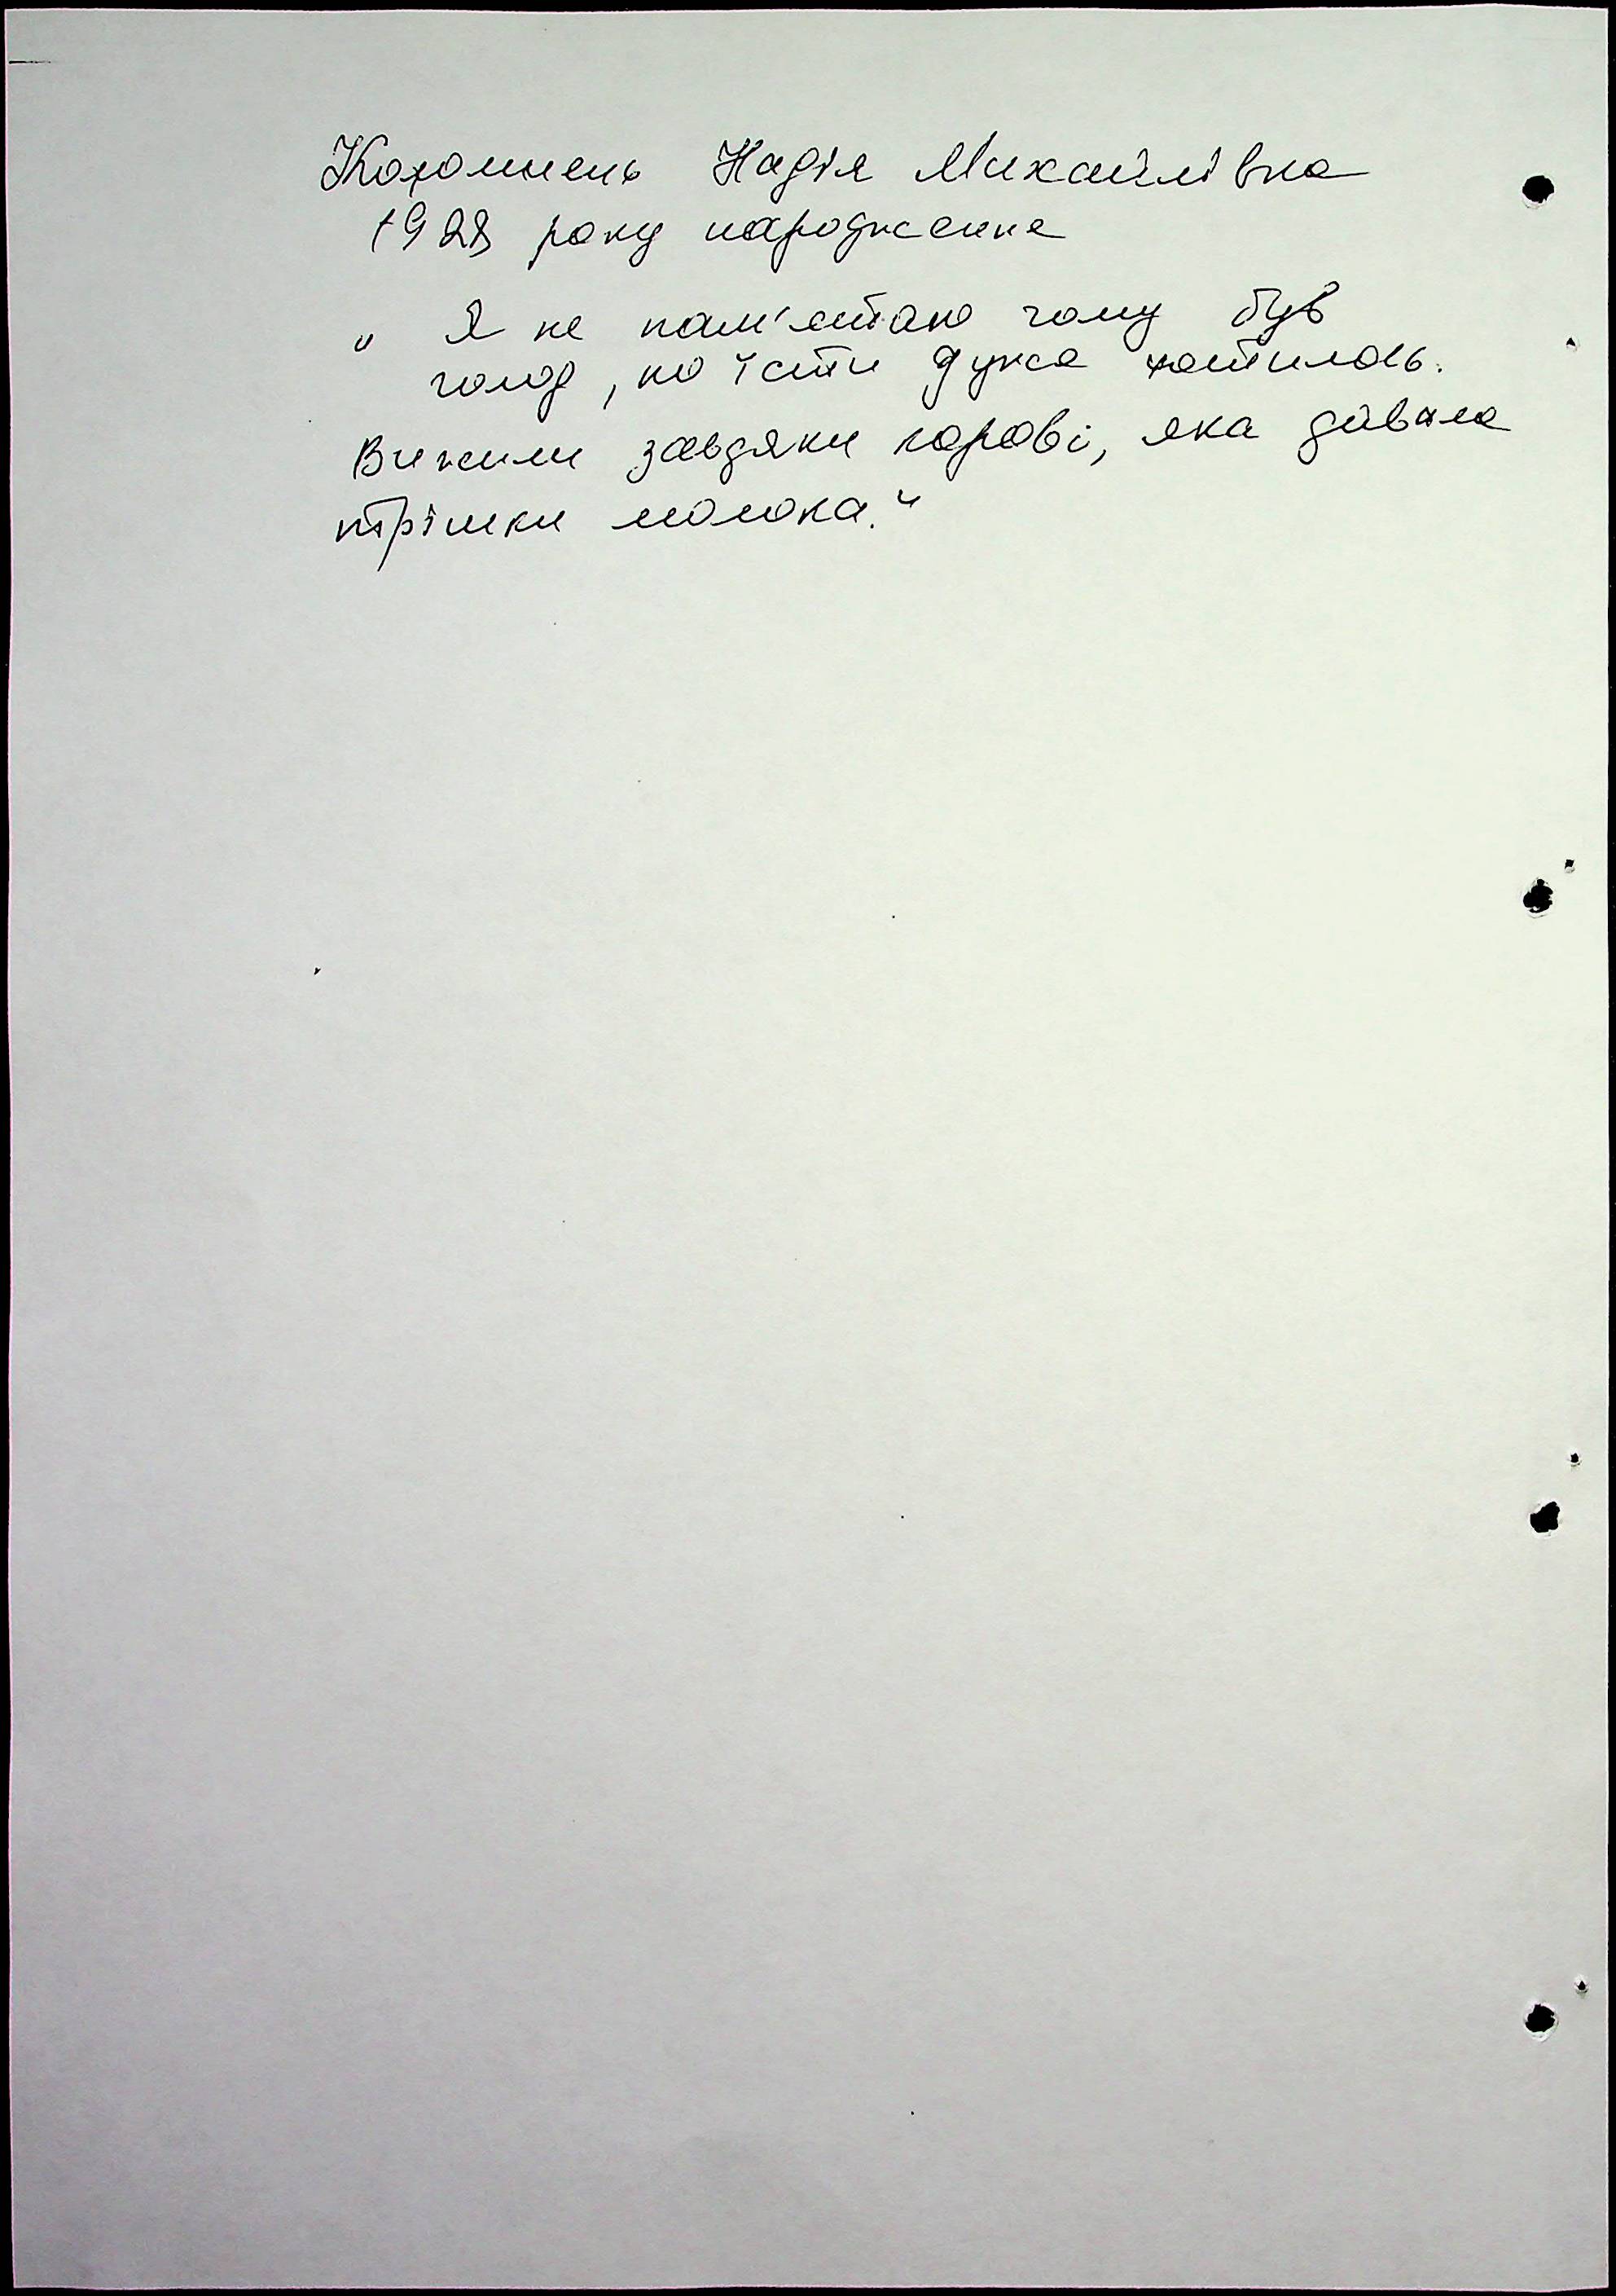 Надія Михайлівна
1928 року народження
„ Я не пам'ятаю чому був
голод, но їсти дуже хотілось.
Вижили завдяки корові, яка давала
трішки молока."